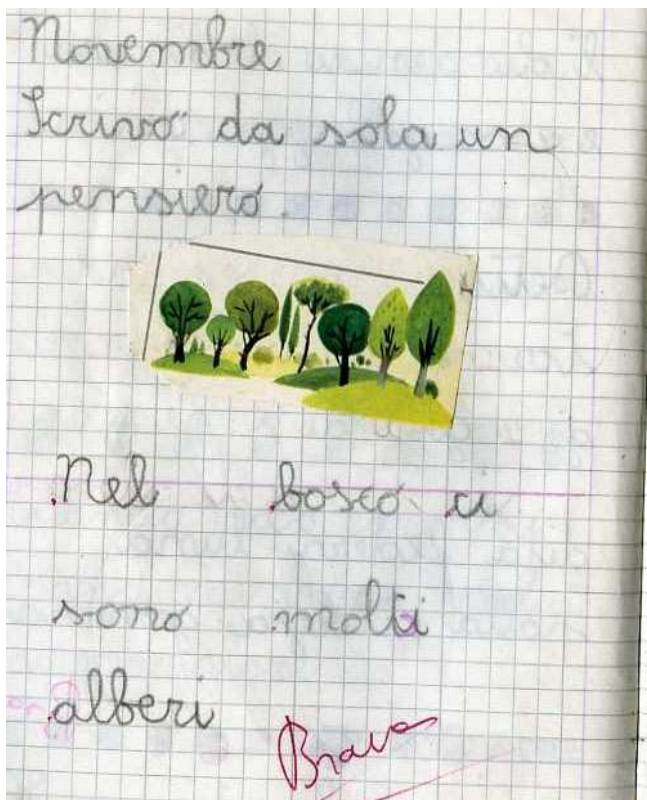 Novembre
Scrivo da sola un
pensiero.
Nel bosco ci
sono molti
alberi
Brava